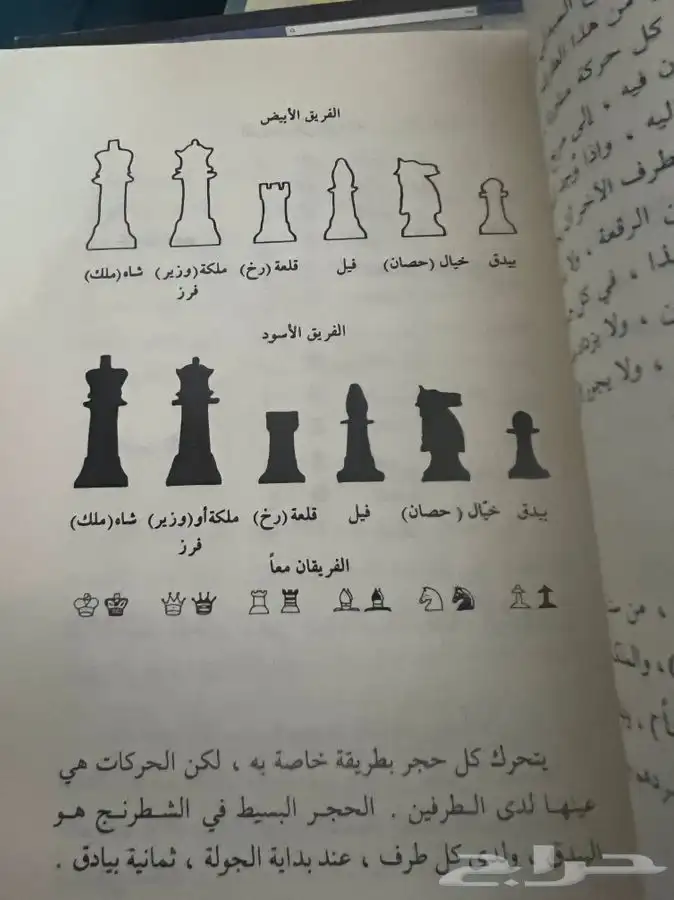 الفريق الأبيض
بيدق خيال (حصان) فيل قلعة (رخ) ملكة (وزير) شاه (ملك)
فرز
الفريق الأسود
بيدق خيّال ( حصان) فيل قلعة (رخ) ملكة أو(وزير) شاه (ملك)
فرز
الفريقان معاً
يتحرك كل حجر بطريقة خاصة به ، لكن الحركات هي
عينها لدى الطرفين . الحجر البسيط في الشطرنج هو
البيدق ، ولدى كل طرف ، عند بداية الجولة ، ثمانية بيادق .
حراج
كل حركة
فيه ، إلى
وإذا
الرقعة ، ولا
، في كل
، ولا
، ولا يجوز
، من